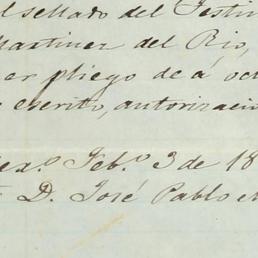 l sellado del Testim
Martinez del Rio,
er pliego de á oc
escrito, autorizació
ex.º Feb.º 3 de 18
D. José Pablo